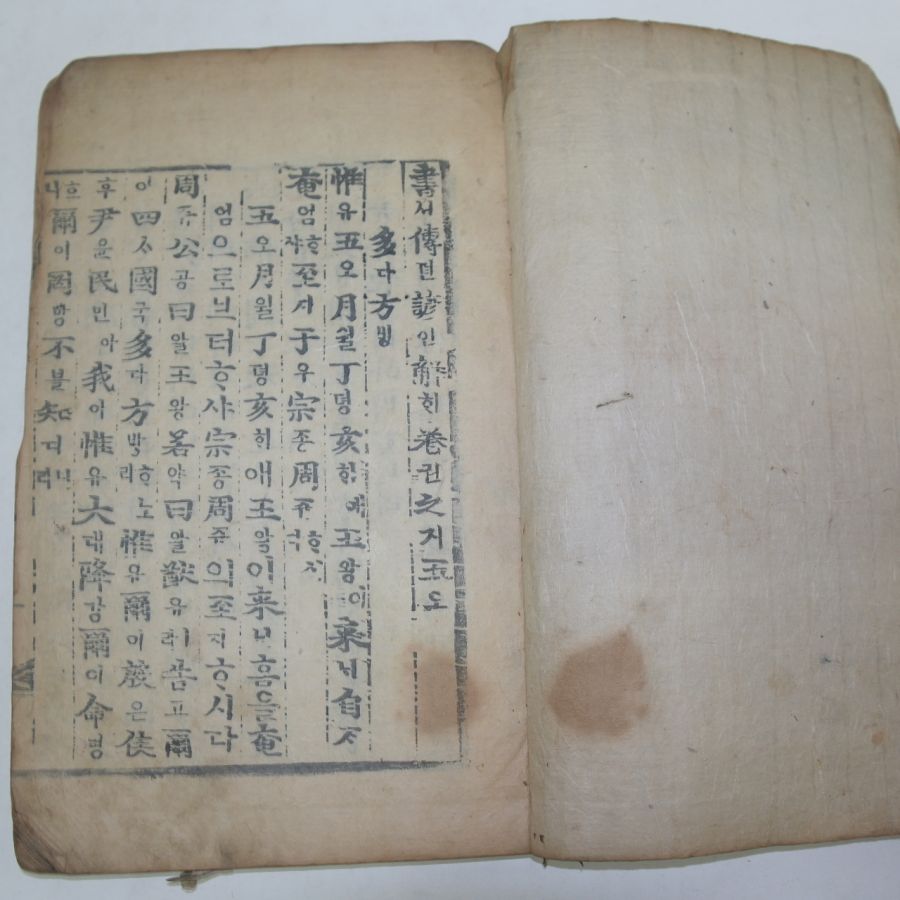 書셔傳뎐諺언解ᄒᆡ卷권之지五오
多다方방
惟유五오月월丁뎡亥ᄒᆡ예王왕이來ᄅᆡ自ᄌᆞ
奄엄ᄒᆞ샤至지于우宗종周쥬ᄒᆞ시다
五오月월丁뎡亥ᄒᆡ애王왕이來ᄅᆡᄒᆞ음을奄
엄으로브터ᄒᆞ샤宗종周쥬의至지ᄒᆞ시다
周쥬公공曰왈王왕若약曰왈猷유라誥고爾
이四ᄉᆞ國국多다方방ᄒᆞ노라惟유爾이殷은侯
후尹윤民민아我아ㅣ惟유大대降강爾이命명
ᄒᆞ니爾이罔망不블知디ᄒᆞ니라